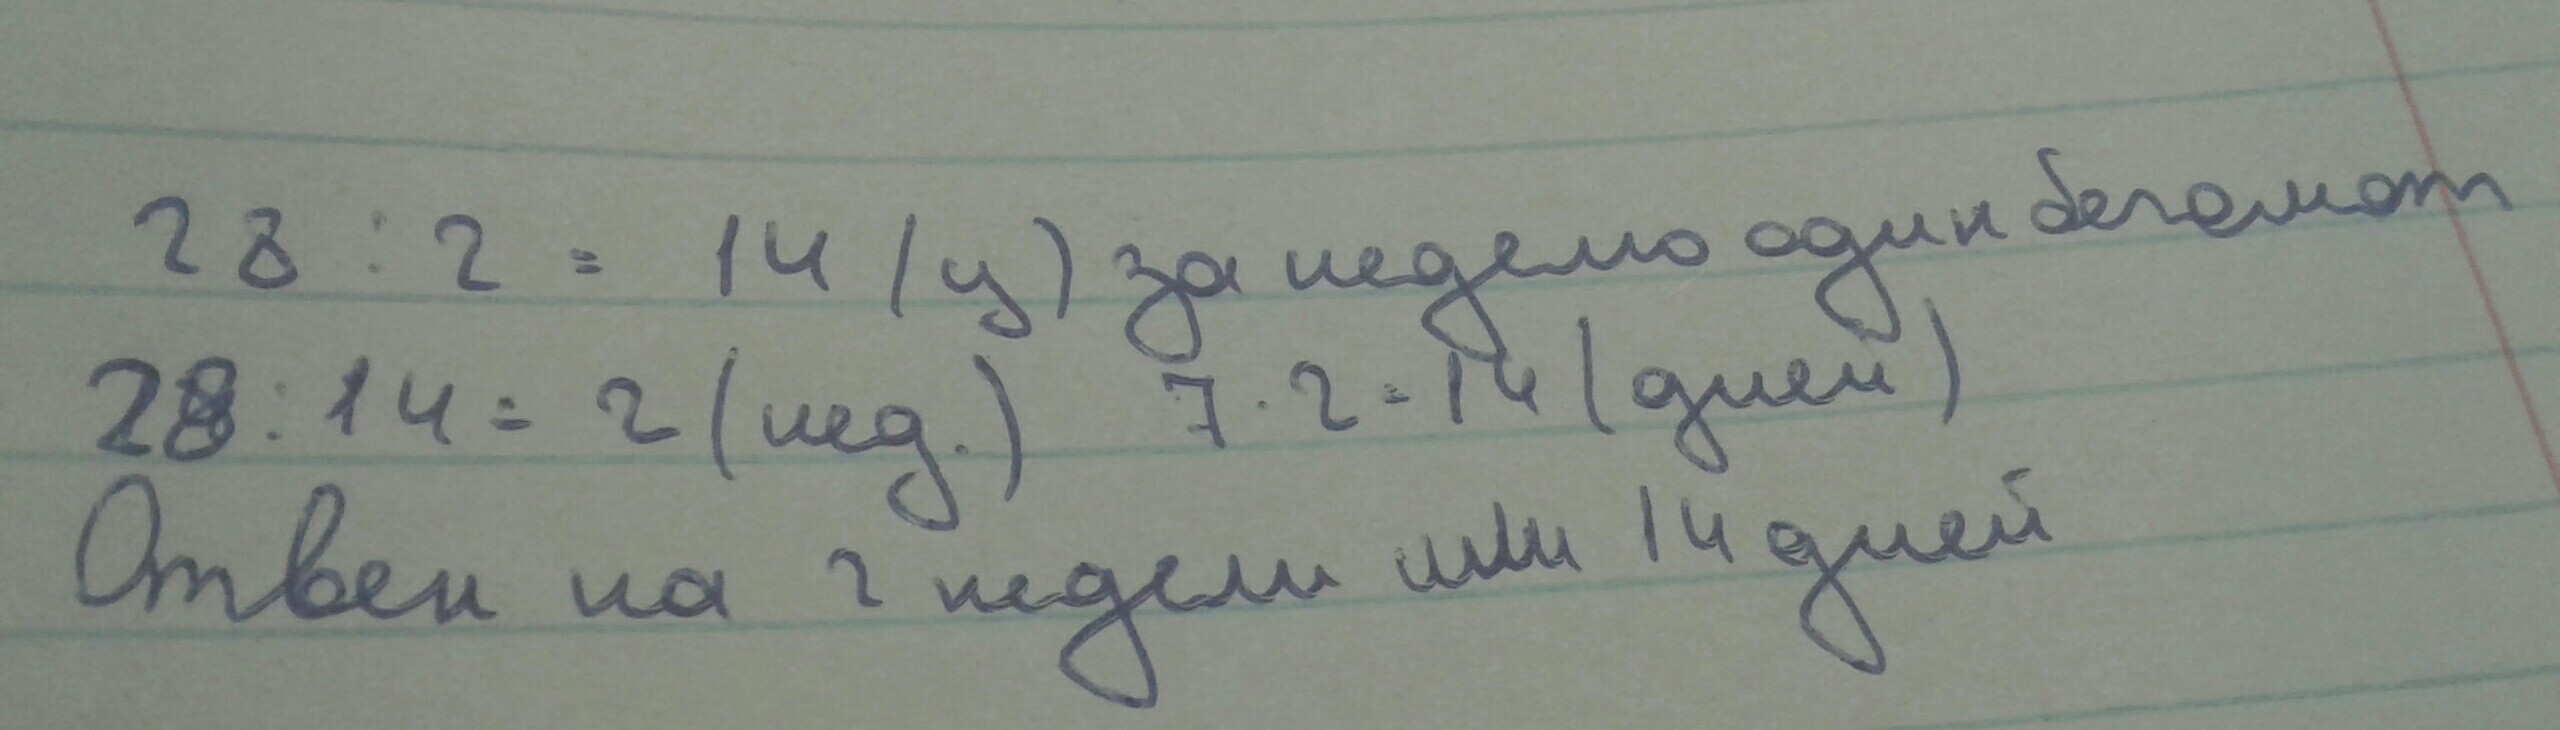 28 : 2 = 14 (ц) за неделю один бегемот
28 : 14 = 2 (нед.) 7 · 2 = 14 (дней)
Ответ на 2 недели или 14 дней